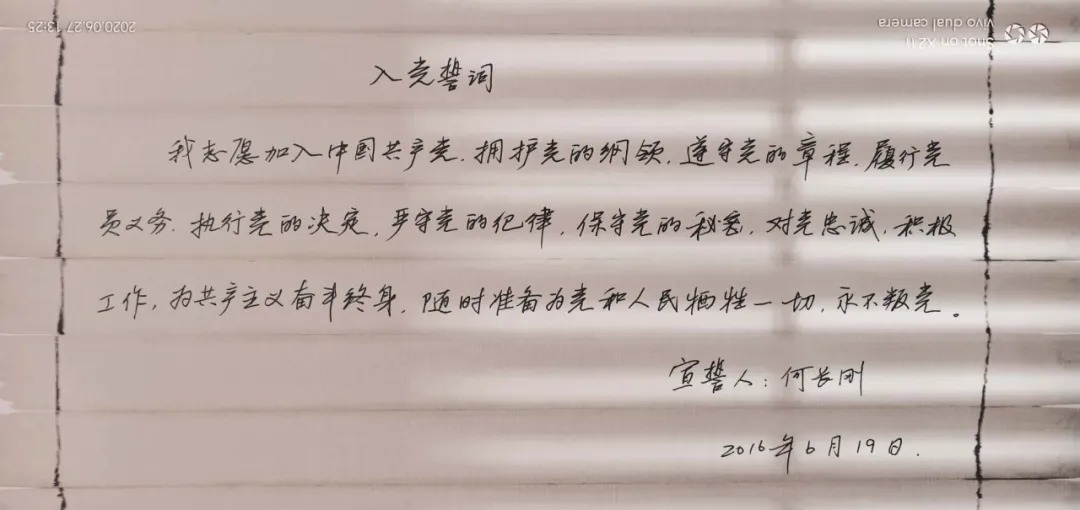 2020.06.27 13:25
Shot on X21i
vivo dual camera
入党誓词
我志愿加入中国共产党,拥护党的纲领,遵守党的章程,履行党
员义务,执行党的决定,严守党的纪律,保守党的秘密,对党忠诚,积极
工作,为共产主义奋斗终身,随时准备为党和人民牺牲一切,永不叛党。
宣誓人:何长刚
2016年6月19日.